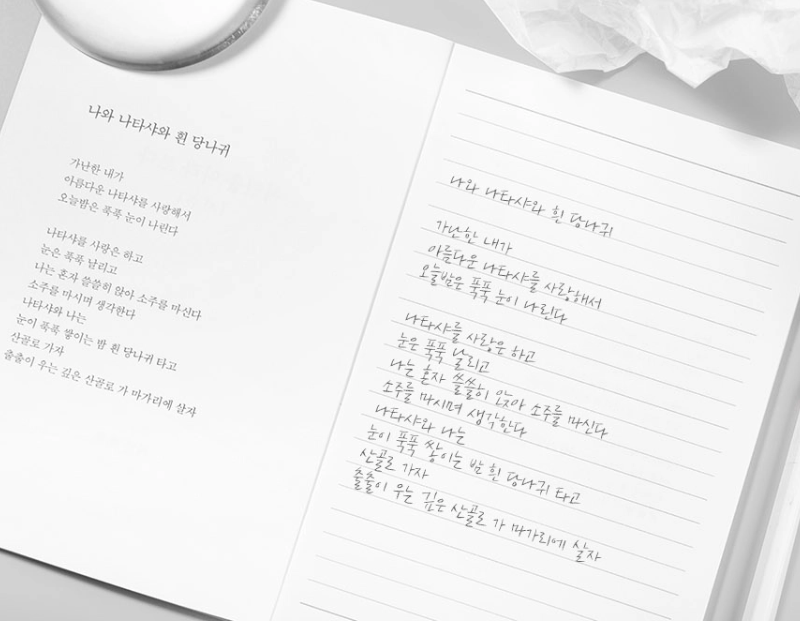 나와 나타샤와 흰 당나귀
가난한 내가
아름다운 나타샤를 사랑해서
오늘밤은 푹푹 눈이 나린다
나타샤를 사랑은 하고
눈은 푹푹 날리고
나는 혼자 쓸쓸히 앉아 소주를 마신다
소주를 마시며 생각한다
나타샤와 나는
눈이 푹푹 쌓이는 밤 흰 당나귀 타고
산골로 가자
출출이 우는 깊은 산골로 가 마가리에 살자
나와 나타샤와 흰 당나귀
가난한 내가
아름다운 나타샤를 사랑해서
오늘밤은 푹푹 눈이 나린다
나타샤를 사랑은 하고
눈은 푹푹 날리고
나는 혼자 쓸쓸히 앉아 소주를 마신다
소주를 마시며 생각한다
나타샤와 나는
눈이 푹푹 쌓이는 밤 흰 당나귀 타고
산골로 가자
출출이 우는 깊은 산골로 가 마가리에 살자